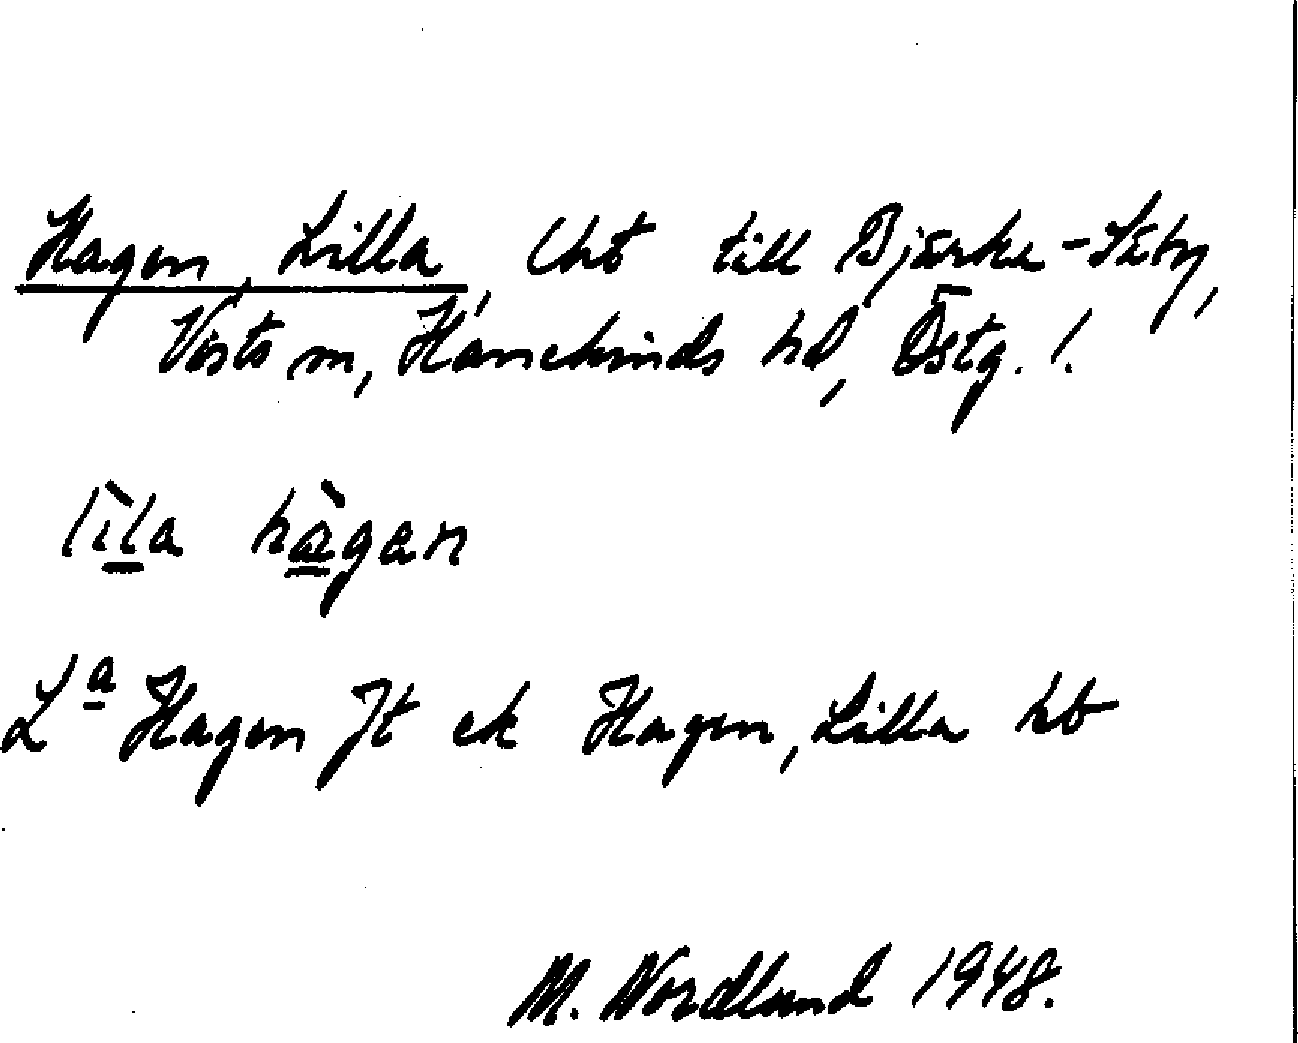 Hagen, Lilla, Uht till Bjärka-Säby,
Vists sn, Hanekinds hd, Östg. l.
lìla hàgan
Lᵃ Hagen Jt ek Hagen, Lilla hb
M. Nordlund 1948.